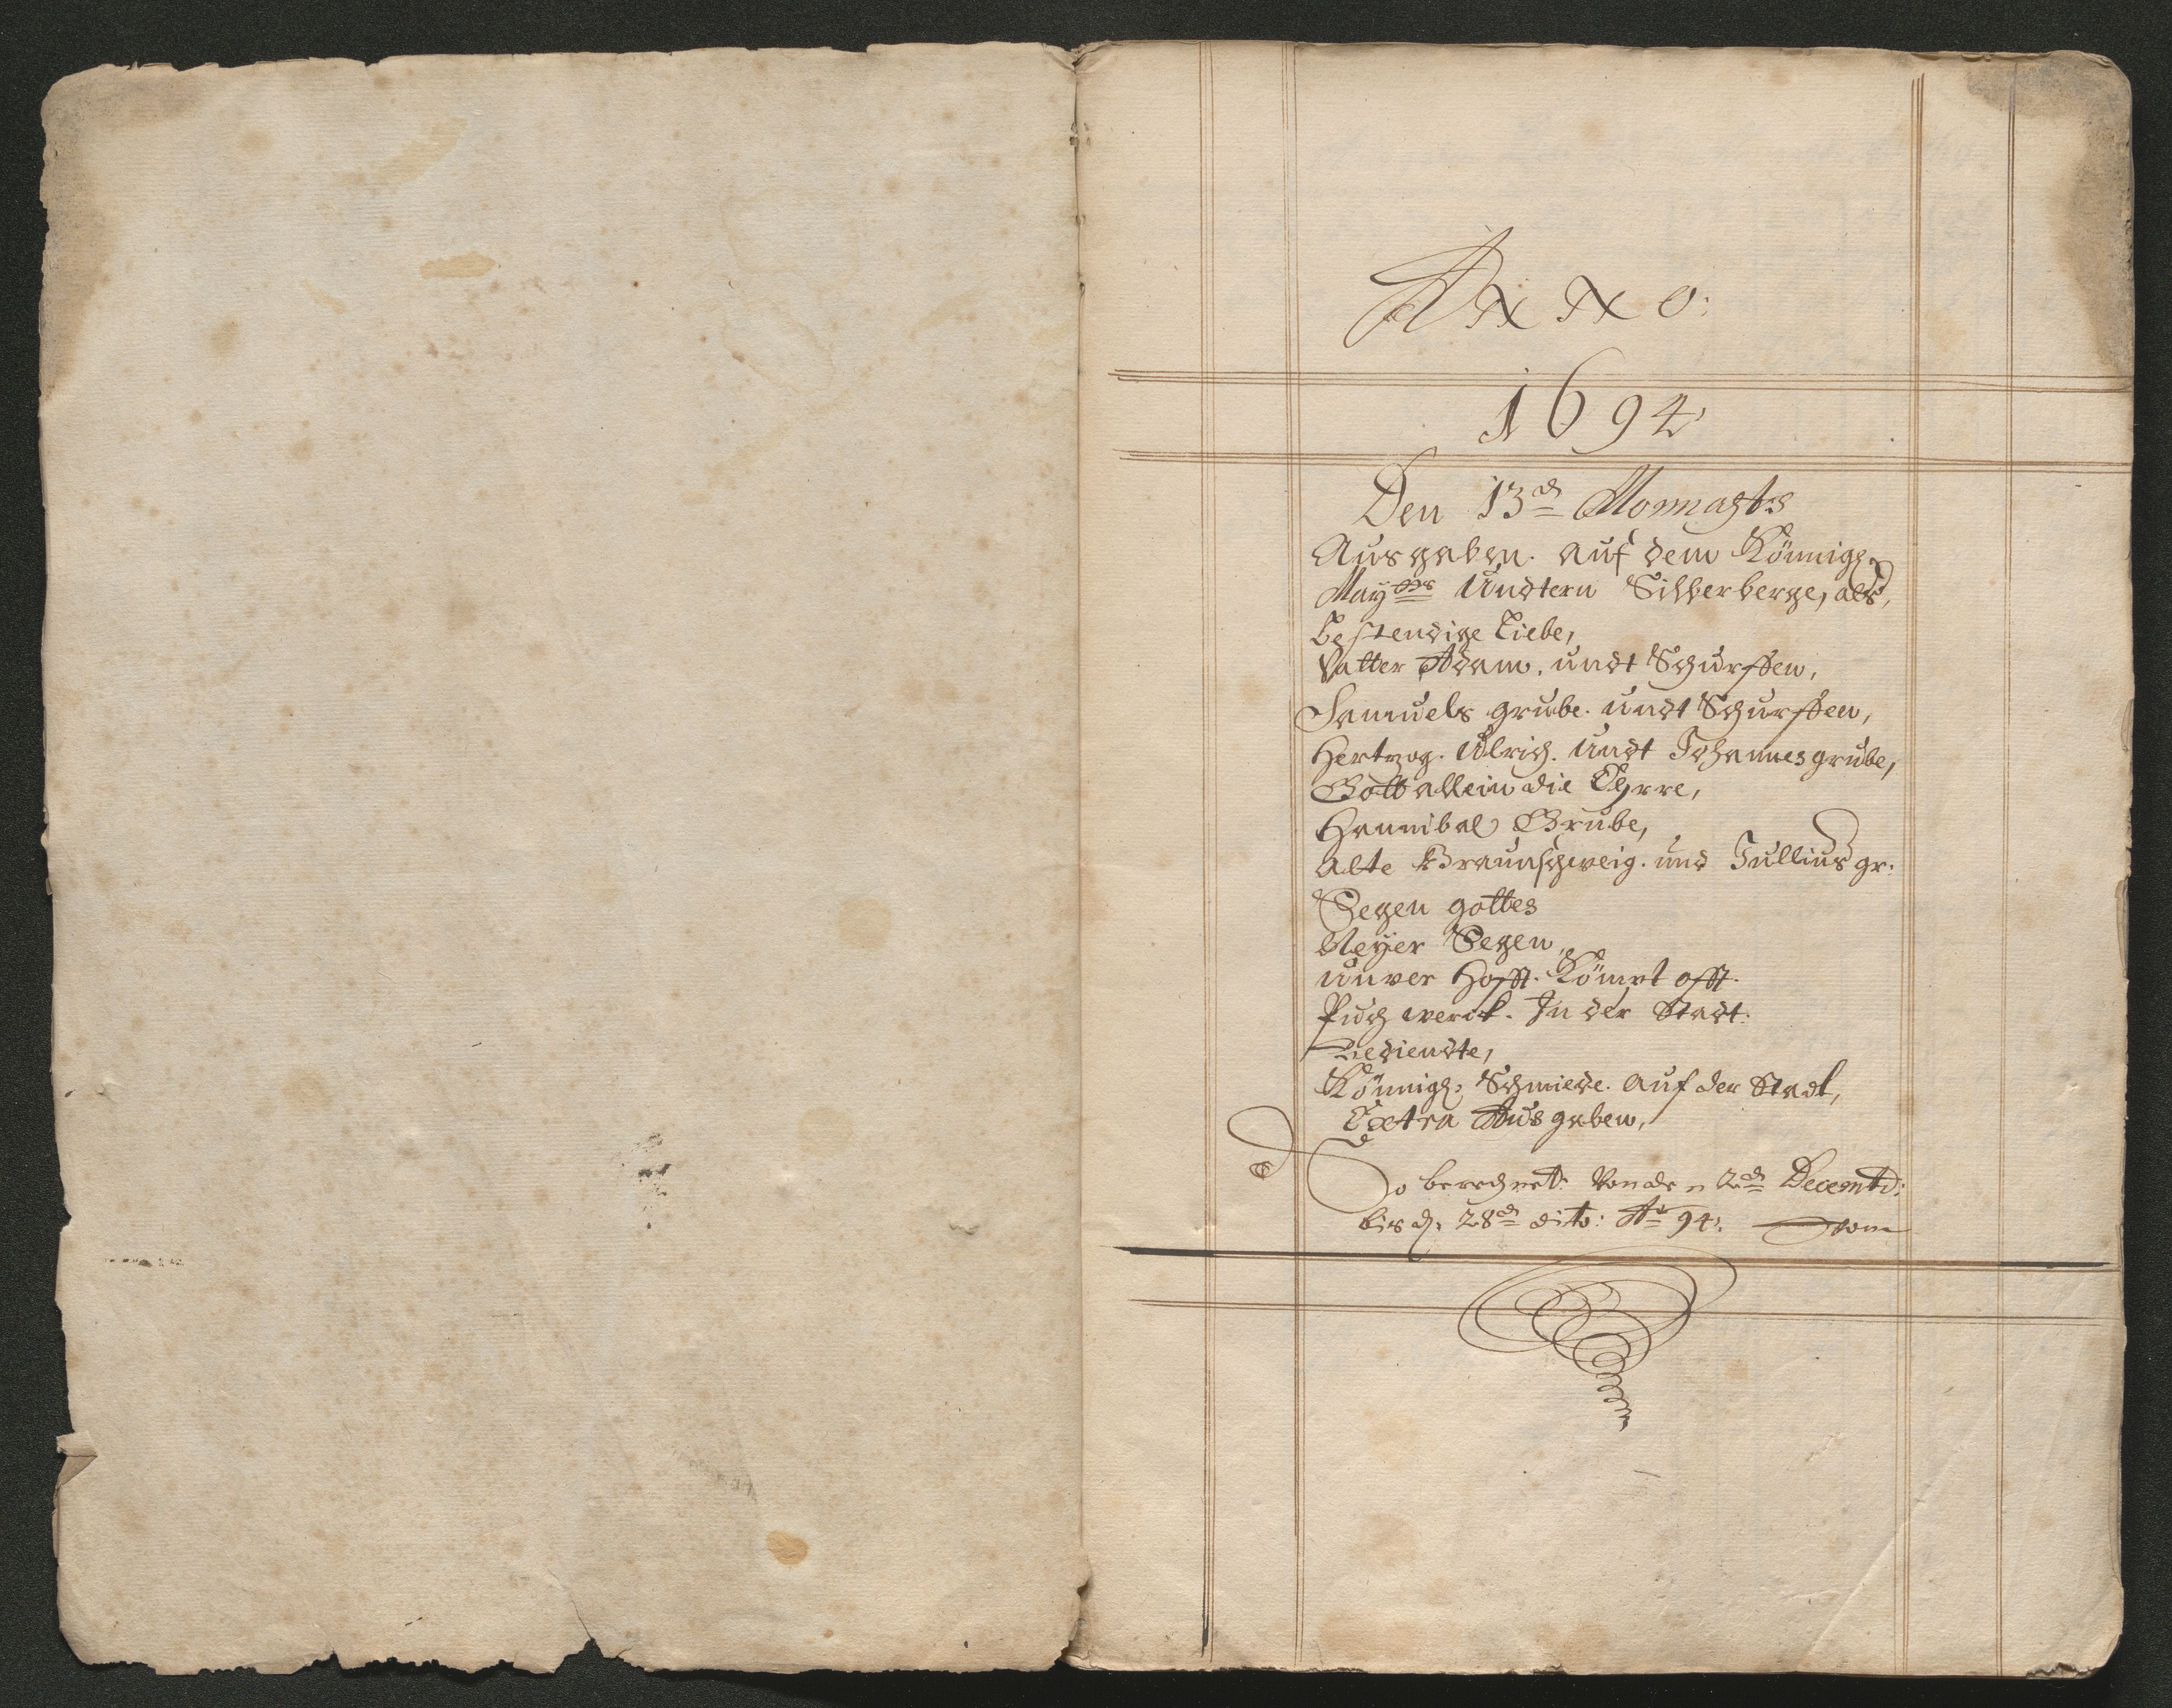 Anno:
1694
Den 13d Monnahts
Ausgaben. auf dem Könnigh
Maytts Undtern Silfverberge, als,
Bestendige Liebe,
Vatter Adam. undt Schurffen,
Samuels grube. undt Schurffen,
Hertzog. Ulrich. Undt Johannes grube,
Gott allein die Ehrre,
Hannibal Grube,
Alte Braunschweig. und Jullius gr.
Segen gottes
Neyer Segen,
unver Hofft. Kömbt offt.
Puch werck. In der Stadt.
Bediendte,
Könnigh: Schmiede. Auf der Stadt,
Extra Ausgaben,
So berechnet: Von den 2d Decemb:
bis d. 28d dito: Ao 94.